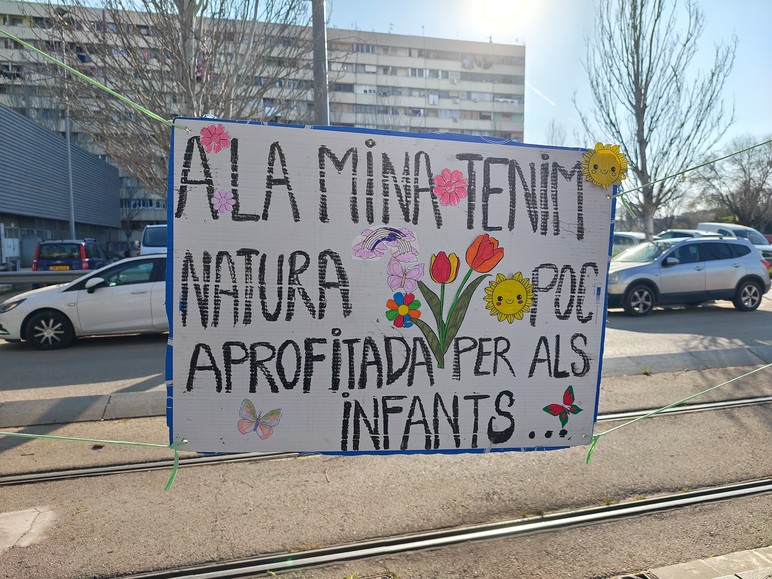 A LA MINA TENIM
NATURA POC
APROFITADA PER ALS
INFANTS...